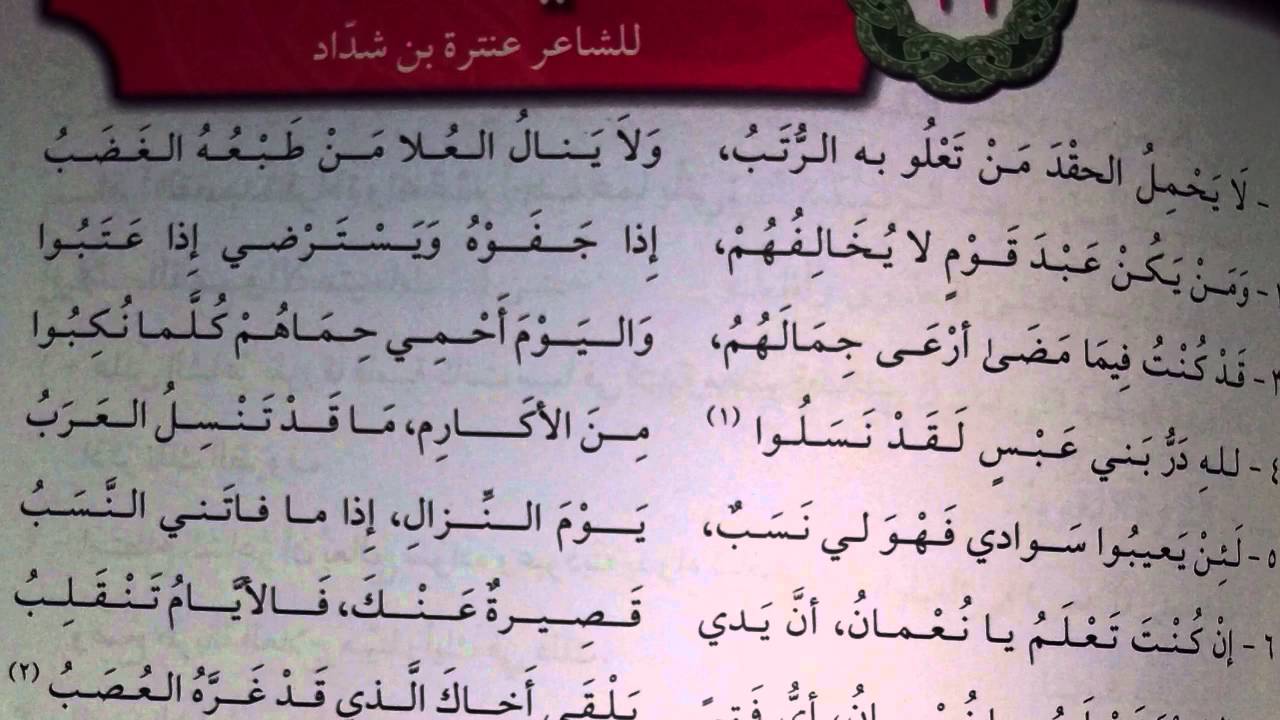 للشاعر عنترة بن شدّاد
- لَا يَحْمِلُ الحقْدَ مَنْ تَعْلُو به الرُّتَبُ، وَلاَ يَنالُ العُلا مَنْ طَبْعُهُ الغَضَبُ
- وَمَنْ يَكُنْ عَبْدَ قَوْمٍ لا يُخَالِفُهُمْ، إِذا جَفَوْهُ وَيَسْتَرْضي إِذا عَتَبُوا
٣- قَدْ كُنْتُ فِيمَا مَضَىٰ أَرْعَى جِمَالَهُمُ، وَاليَوْمَ أَحْمِي حِمَاهُمْ كُلَّما نُكِبُوا
٤- للهِ دَرُّ بَني عَبْسٍ لَقَدْ نَسَلُوا (١) مِنَ الأكَارِمِ، مَا قَدْ تَنْسِلُ العَرَبُ
٥- لَئِنْ يَعيبُوا سَوادي فَهْوَ لي نَسَبٌ، يَوْمَ النِّزالِ، إِذا ما فاتَني النَّسَبُ
٦- إنْ كُنْتَ تَعْلَمُ يا نُعْمانُ، أنَّ يَدي قَصِيرةٌ عَنْكَ، فَالأيَّامُ تَنْقَلِبُ
أيُّ فَتىً يَلْقَى أخاكَ الَّذي قَدْ غَرَّهُ العُصَبُ (٢)